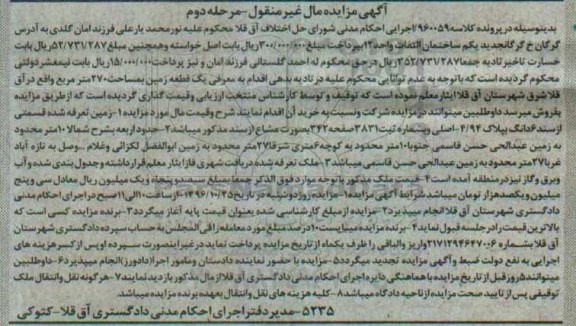 آگهی مزایده مال غیر منقول - مرحله دوم
بدینوسیله در پرونده کلاسه ۹۶۰۰۵۹/اجرایی احکام مدنی شورای حل اختلاف آق قلا محکوم علیه نور محمد یارعلی فرزند امان گلدی به آدرس
گرگان خ گرگانجدید یکم ساختمان التفات واحد ۱۲ بپرداخت مبلغ ۳۰۰/۰۰۰/۰۰۰ریال بابت اصل خواسته و همچنین مبلغ ۵۲/۷۳۱/۲۸۷ریال بابت
خسارت تاخیر تادیه جمعا ۳۵۲/۷۳۱/۲۸۷ریال در حق محکوم له احمد گلستانی فرزند امان و نیز پرداخت ۱۵/۰۰۰/۰۰۰ریال بابت نیمعشر دولتی
محکوم گردیده است که با توجه به عدم توانایی محکوم علیه در تادیه بدهی اقدام به معرفی یک قطعه زمین بمساحت ۲۷۰متر مربع واقع در آق
قلا شرق شهرستان آق قلا ایثار معلم نموده است که توقیف و توسط کارشناس منتخب ارزیابی و قیمت گذاری گردیده است که از طریق مزایده
بفروش میرسد داوطلبین میتوانند در مزایده شرکت و نسبت به خرید آن اقدام نمایند شرح و قیمت مال مورد مزایده ۱- زمین تعرفه شده قسمتی
از سند ۶دانگ پلاک ۴/۹۲- اصلی وبشماره ثبت ۳۸۳۱صفحه ۲۴۲بصورت مشاع از سند مذکور میباشد ۲- حدود اربعه بشرح شمالا ۱۰متر محدود
به زمین عبدالحی حسن قاسمی جنوبا ۱۰متر محدود به کوچه ۶متری شرقا ۲۷متر محدود به زمین ابوالفضل لکزائی وغلام ... وصل به تازه آباد
غربا ۲۷متر محدود به زمین عبدالحی حسن قاسمی میباشد ۳- ملک تعرفه شده دریافت شهری فاز ایثار معلم قرار داشته و جدول بندی شده و آب
وبرق و گاز نیز در منطقه آمده است ۴- قیمت ملک مذکور با توجه موارد فوق الذکر جمعا بمبلغ سیصد و پنجاه ویک میلیون ریال معادل سی وپنج
میلیون و یکصد هزار تومان میباشد شرایط آگهی مزایده ۱- مزایده روز دوشنبه در تاریخ ۱۳۹۶/۱۰/۲۵ از ساعت ۱۰الی ۱۱صبح در اجرای احکام مدنی
دادگستری شهرستان آق قلا انجام میپذیرد ۲- مزایده از مبلغ کارشناسی شده بعنوان قیمت پایه آغاز میگردد ۳- برنده مزایده کسی است که
بالاترین قیمت را در جلسه قبول نماید ۴- برنده مزایده میبایست ۱۰درصد مبلغ مورد معامله را فی المجلس به حساب سپرده دادگستری شهرستان
آق قلا بشماره ۲۱۷۱۲۹۴۶۴۷۰۰۶واریز والباقی را ظرف یکماه از تاریخ مزایده پرداخت نماید در غیر اینصورت سپرده او پس از کسر هزینه های
اجرایی به نفع دولت ضبط و آگهی مزایده تجدید میگردد ۵- مزایده با حضور نماینده دادستان و مامور اجرا (دادورز) انجام میپذیرد ۶- داوطلبین
میتوانند ۵روز قبل از تاریخ مزایده با هماهنگی دایره اجرای احکام مدنی دادگستری آق قلا از مال مذکور بازدید نمایند ۷- هرگونه نقل وانتقال ملک
توقیفی پس از تایید صحت مزایده از ناحیه دادگاه میباشد ۸- کلیه هزینه های نقل وانتقال بعهده برنده مزایده میباشد.
۵۲۳۵- مدیر دفتر اجرای احکام مدنی دادگستری آق قلا - کتوکی